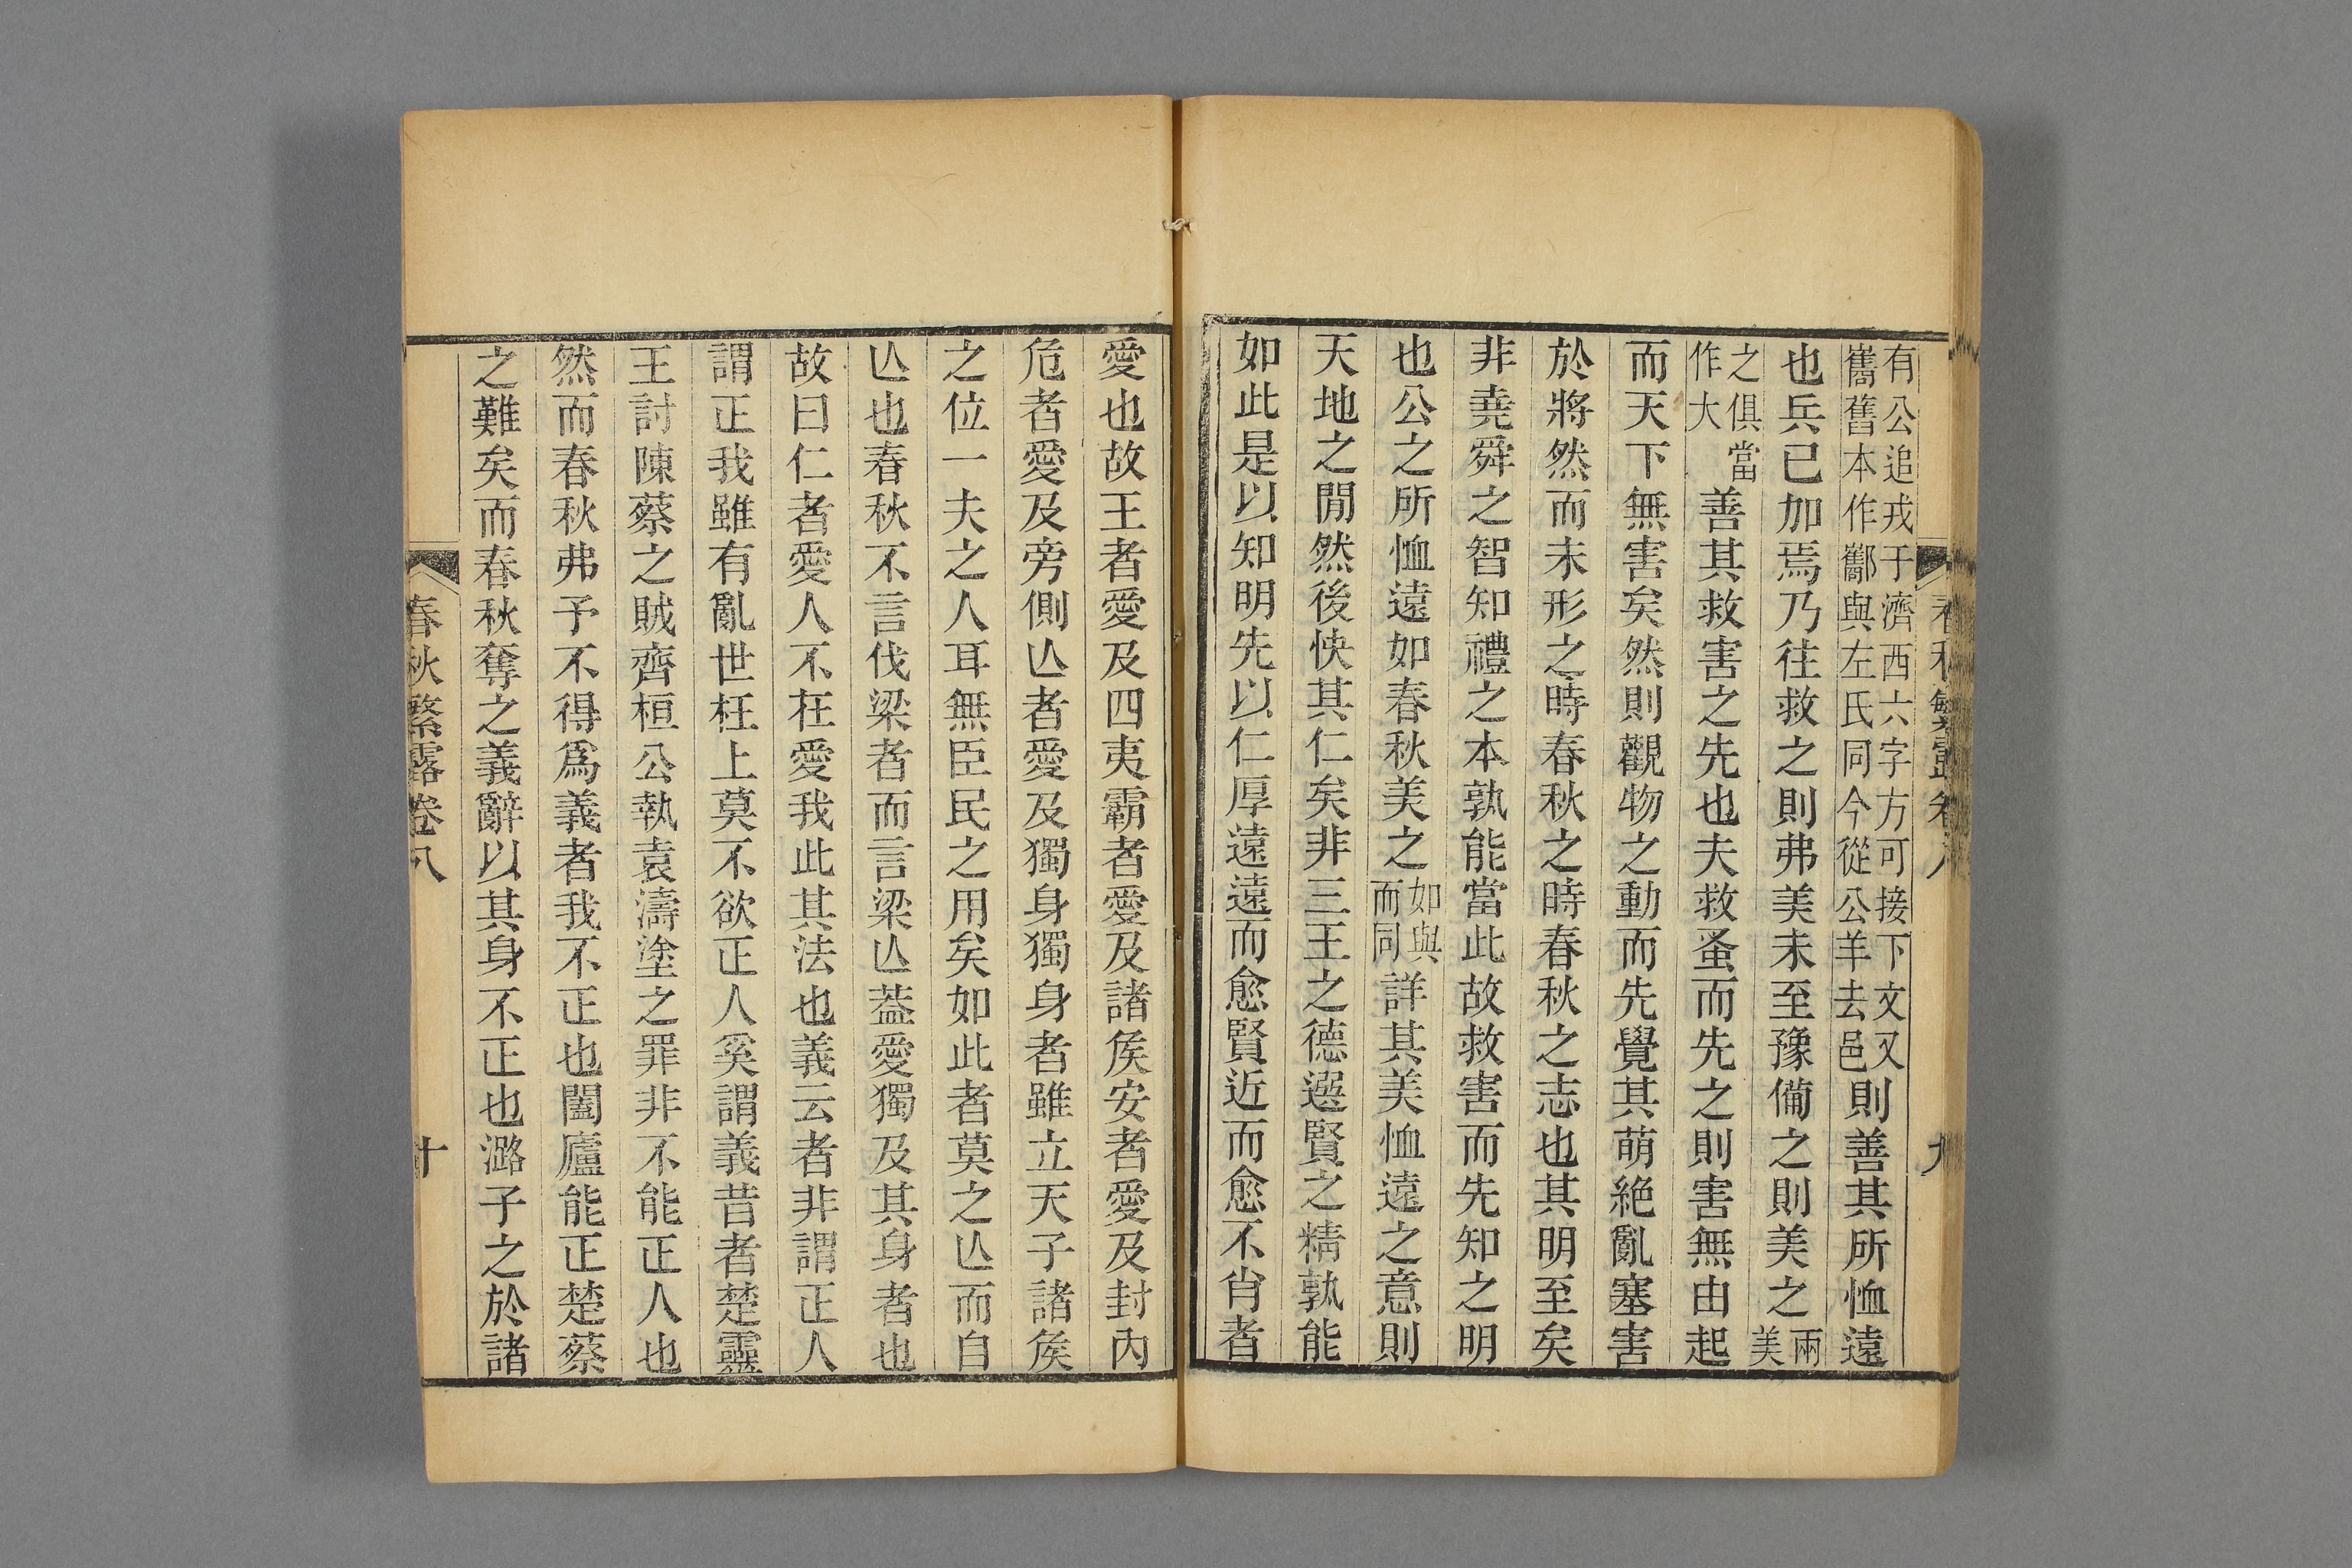 春秋繁露卷八
九
有公追戎于濟西六字方可接下文又
巂舊本作酅與左氏同今從公羊去邑
則善其所恤遠
也兵已加焉乃往救之則弗美未至豫備之則美之
兩
美
之俱當
作大
善其救害之先也夫救蚤而先之則害無由起
而天下無害矣然則觀物之動而先覺其萌絶亂塞害
於將然而未形之時春秋之時春秋之志也其明至矣
非堯舜之智知禮之本孰能當此故救害而先知之明
也公之所恤遠如春秋美之
如與
而同
詳其美恤遠之意則
天地之閒然後快其仁矣非三王之德選賢之精孰能
如此是以知明先以仁厚遠遠而愈賢近而愈不肖者
愛也故王者愛及四夷霸者愛及諸矦安者愛及封內
危者愛及旁側亾者愛及獨身獨身者雖立天子諸矦
之位一夫之人耳無臣民之用矣如此者莫之亾而自
亾也春秋不言伐梁者而言梁亾葢愛獨及其身者也
故曰仁者愛人不在愛我此其法也義云者非謂正人
謂正我雖有亂世枉上莫不欲正人奚謂義昔者楚靈
王討陳蔡之賊齊桓公執袁濤塗之罪非不能正人也
然而春秋弗予不得爲義者我不正也闔廬能正楚蔡
之難矣而春秋奪之義辭以其身不正也潞子之於諸
春秋繁露卷八
十